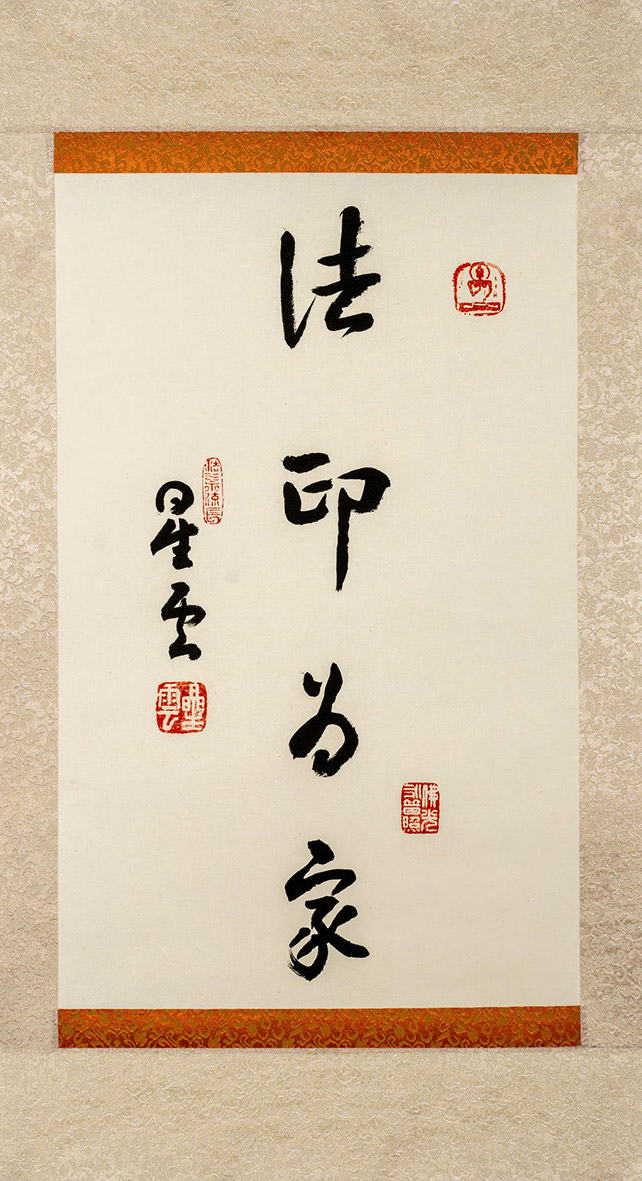 法印为家
星雲
星雲
佛光
永普照